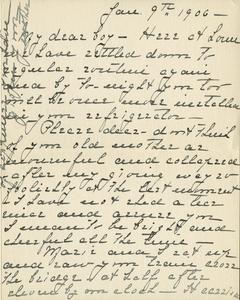 Jan. 9th 1906 -
My dear boy - Here at home
we have settled down to
regular routine again
and by to-night you too
will be once more installed
in your refrigerator -
Please dear - don't think
of your old mother as
mournful and collapsed
after my giving way so
foolishly at the last moment
I have not shed a tear
since and assure you
I mean to be bright and
cheerful all the time
Marie and I sat up
and knew your train cross
the bridge at half after
eleven by our clock -